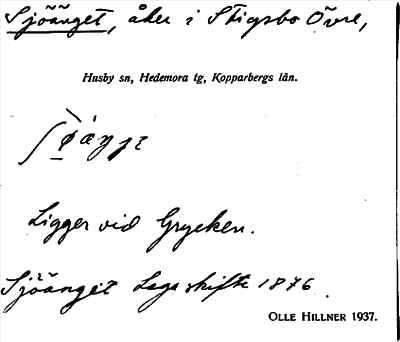 Sjöänget, åker i Stigsbo Övre,
Husby sn, Hedemora tg, Kopparbergs län.
Ligger vid Grycken.
Sjöänget Laga skifte 1876.
OLLE HILLNER 1937.